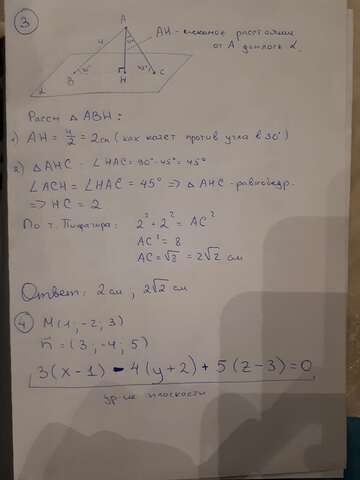 3
A
AH - искомое расстояние
от A до пл-ти α.
4
30°
45°
B
H
C
α
Рассм △ABH:
1) AH = 4/2 = 2см (как катет против угла в 30°)
2) △AHC - ∠HAC = 90° - 45° = 45°
∠ACH = ∠HAC = 45° => △AHC - равнобедр.
=> HC = 2
По т. Пифагора: 2² + 2² = AC²
AC² = 8
AC = √8 = 2√2 см
Ответ: 2см, 2√2 см
4 M(1; -2; 3)
n = (3; -4; 5)
3(x-1) - 4(y+2) + 5(z-3) = 0
ур-ие плоскости